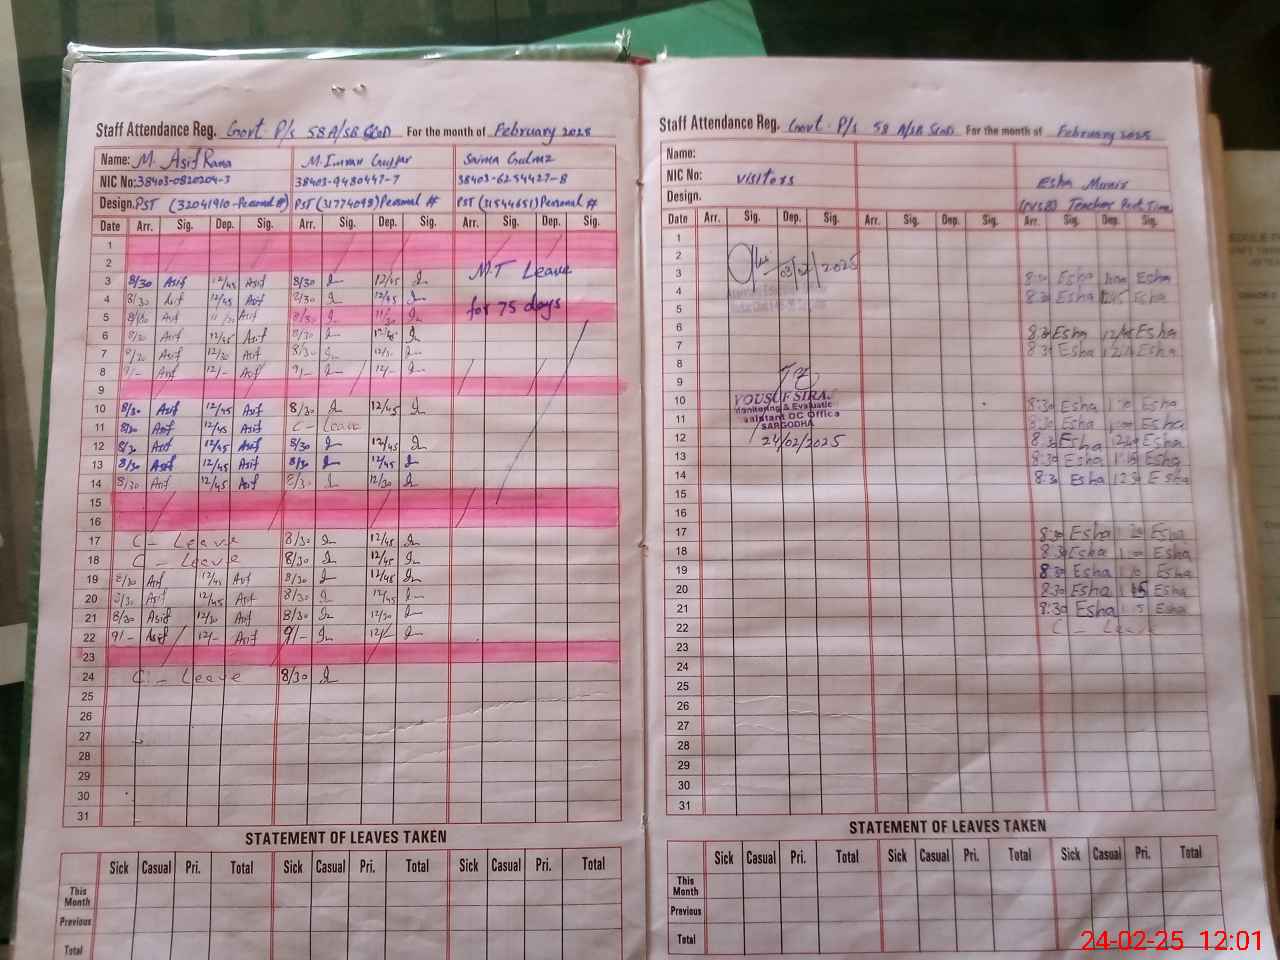 Staff Attendance Reg. Govt. P/s 58 A/SB For the month of February 2025
Name: M. Asif Rana M. Imran Gujjar Saima Gulnaz
NIC No: 38403-0820204-3 38403-9480447-7 38403-6254427-8
Design. PST (32041910-Personal #) PST (31774098) Personal # PST (31544651) Personal #
Date Arr. Sig. Dep. Sig. Arr. Sig. Dep. Sig. Arr. Sig. Dep. Sig.
1
2
3 8/30 Asif 12/45 Asif 8/30 12/45 M.T Leave
4 8/30 Asif 12/45 Asif 8/30 12/45
5 8/30 Asif 11/30 Asif 8/30 11/30 for 75 days
6 8/30 Asif 12/45 Asif 8/30 12/45
7 8/30 Asif 12/30 Asif 8/30 12/30
8 9/- Asif 12/- Asif 9/- 12/-
9
10 8/30 Asif 12/45 Asif 8/30 12/45
11 8/30 Asif 12/45 Asif C - Leave
12 8/30 Asif 12/45 Asif 8/30 12/45
13 8/30 Asif 12/45 Asif 8/30 12/45
14 8/30 Asif 12/45 Asif 8/30 12/30
15
16
17 C - Leave 8/30 12/45
18 C - Leave 8/30 12/45
19 8/30 Asif 12/45 Asif 8/30 12/45
20 8/30 Asif 12/45 Asif 8/30 12/45
21 8/30 Asif 12/30 Asif 8/30 12/30
22 9/- Asif 12/- Asif 9/- 12/-
23
24 C - Leave 8/30
25
26
27
28
29
30
31
STATEMENT OF LEAVES TAKEN
Sick Casual Pri. Total Sick Casual Pri. Total Sick Casual Pri. Total
This Month
Previous
Total
Staff Attendance Reg. Govt. P/s 58 A/SB For the month of February 2025
Name:
NIC No: Visitors Esha Munir
Design. Teacher Part Time
Date Arr. Sig. Dep. Sig. Arr. Sig. Dep. Sig. Arr. Sig. Dep. Sig.
1
2
3 03/02/2025 8:30 Esha Esha
4 8:30 Esha 12:45 Esha
5
6 8:30 Esha 12:45 Esha
7 8:30 Esha Esha
8
9
10 YOUSUF SIRAJ 8:30 Esha Esha
Monitoring & Evaluation
11 Assistant DC Office 8:30 Esha Esha
SARGODHA
12 24/02/2025 8:30 Esha Esha
13 8:30 Esha Esha
14 8:30 Esha 12:30 Esha
15
16
17 8:30 Esha Esha
18 8:30 Esha Esha
19 8:30 Esha Esha
20 8:30 Esha Esha
21 8:30 Esha Esha
22 C - Leave
23
24
25
26
27
28
29
30
31
STATEMENT OF LEAVES TAKEN
Sick Casual Pri. Total Sick Casual Pri. Total Sick Casual Pri. Total
This Month
Previous
Total
24-02-25 12:01